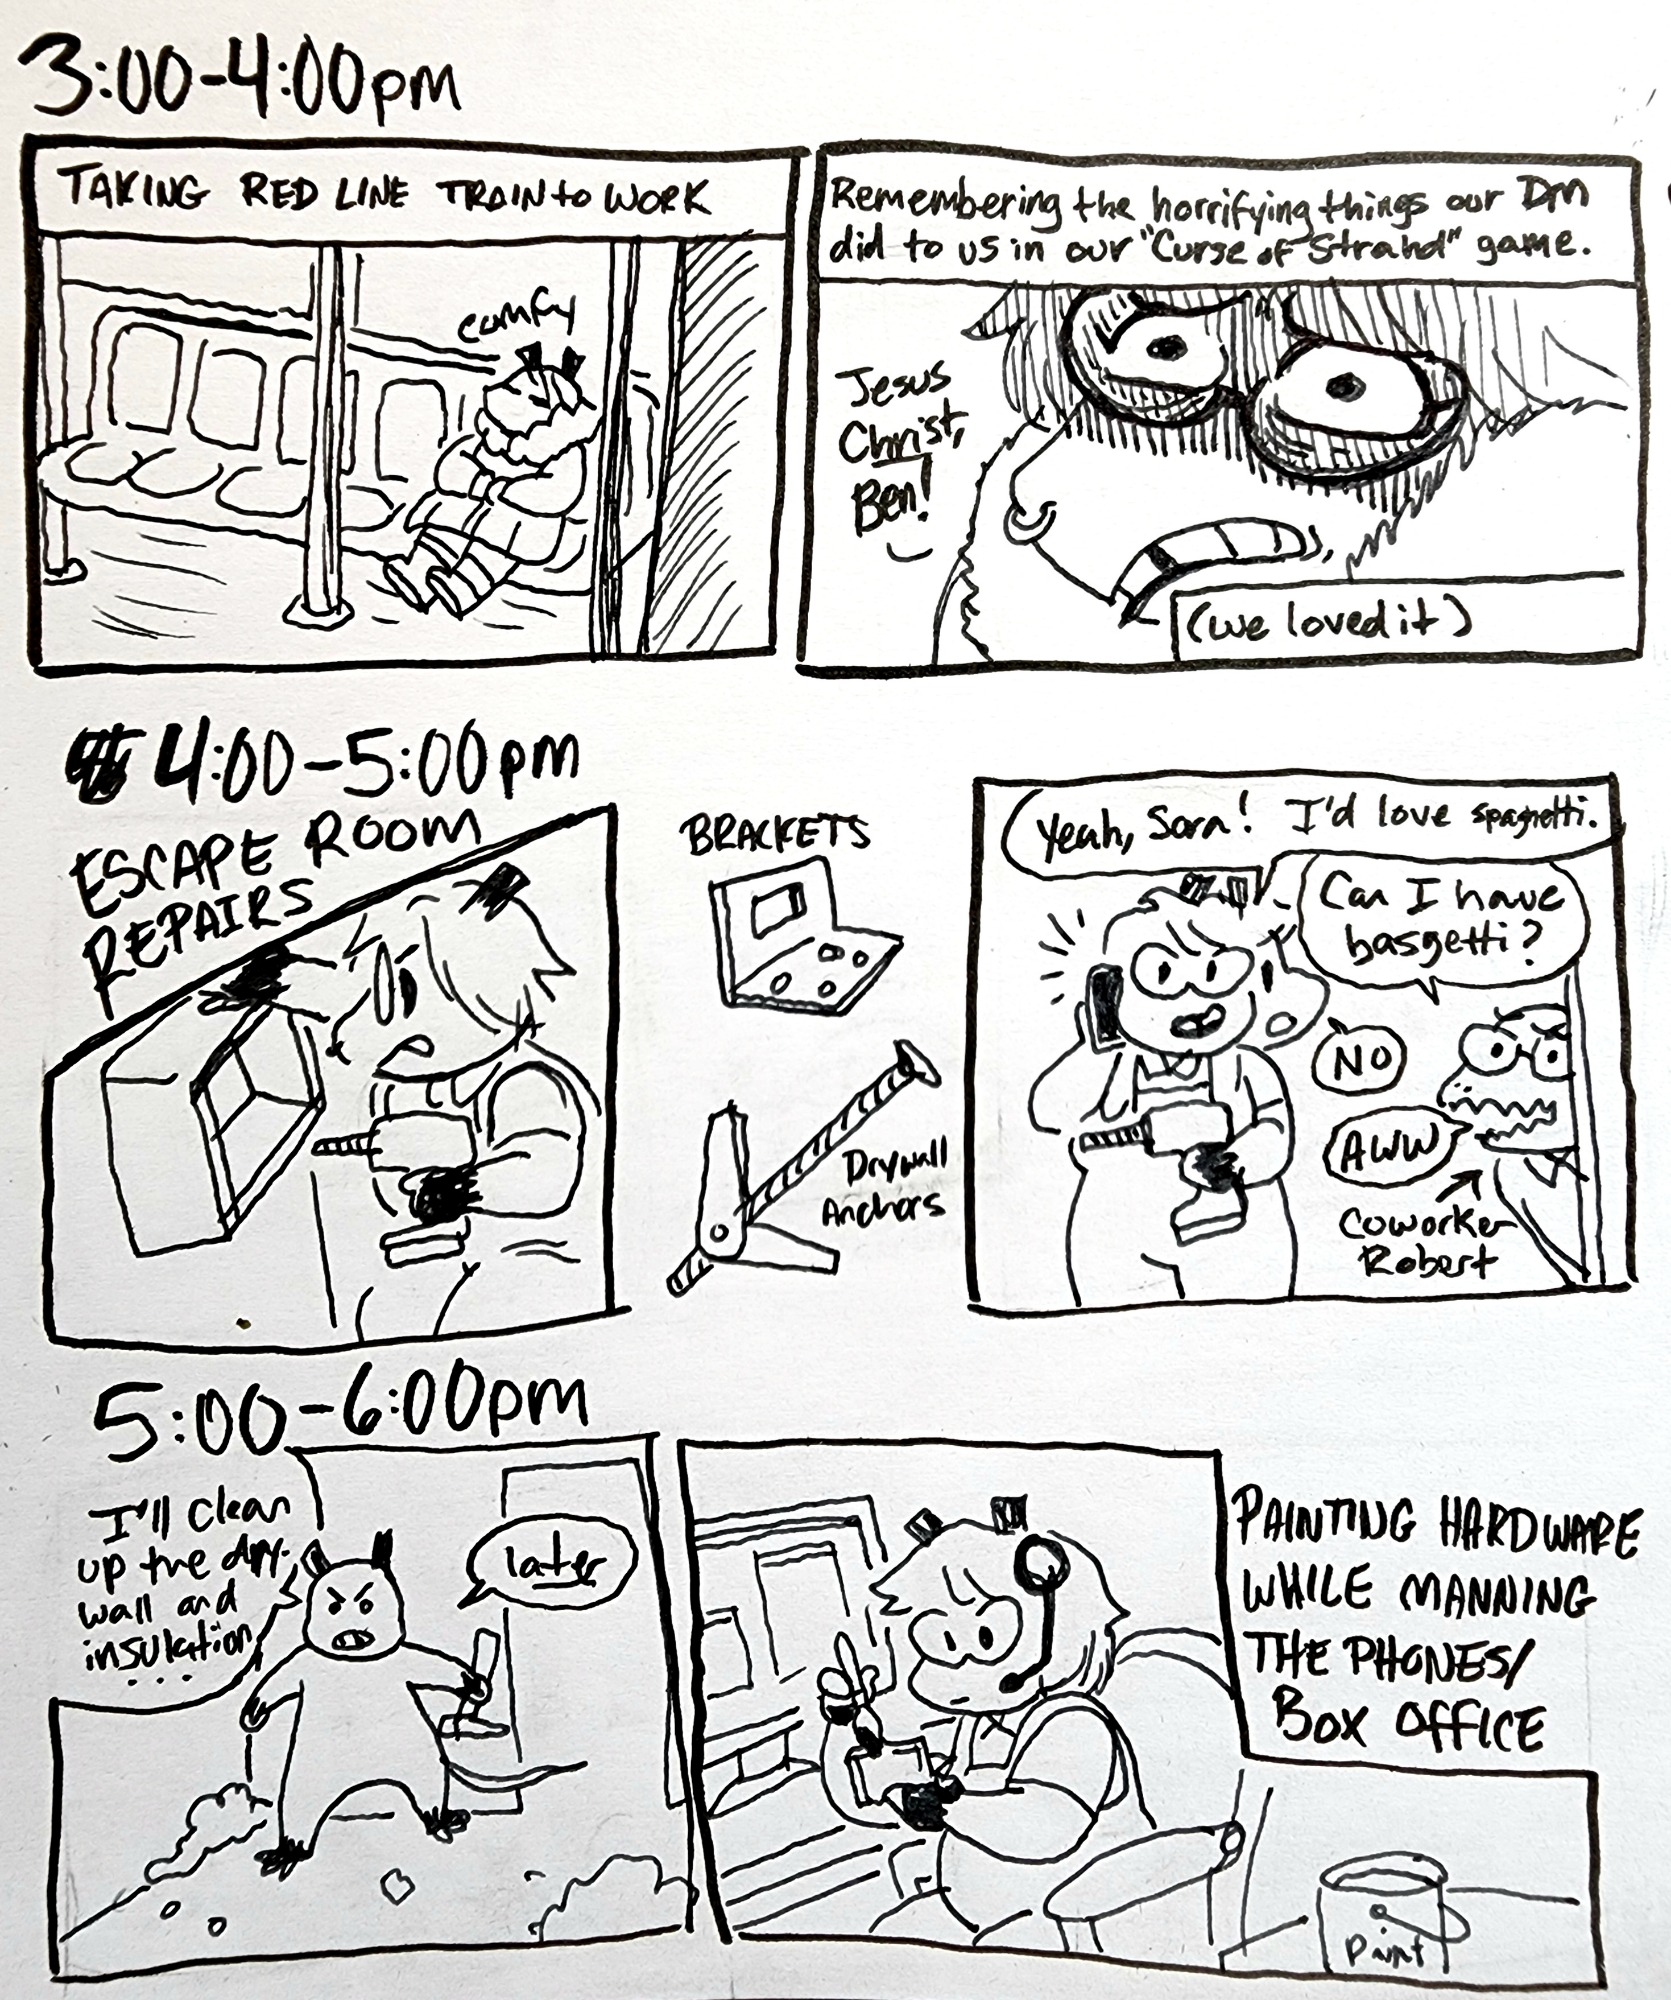 3:00-4:00pm
TAKING RED LINE TRAIN to WORK
comfy
Remembering the horrifying things our DM
did to us in our "Curse of Strahd" game.
Jesus
Christ,
Ben!
(we loved it)
4:00-5:00pm
ESCAPE ROOM
REPAIRS
BRACKETS
Drywall
Anchors
Yeah, Sara! I'd love spaghetti.
Can I have
basgetti?
NO
AWW
Coworker
Robert
5:00-6:00pm
I'll clean
up the dry-
wall and
insulation
...
later
PAINTING HARDWARE
WHILE MANNING
THE PHONES/
BOX OFFICE
Paint